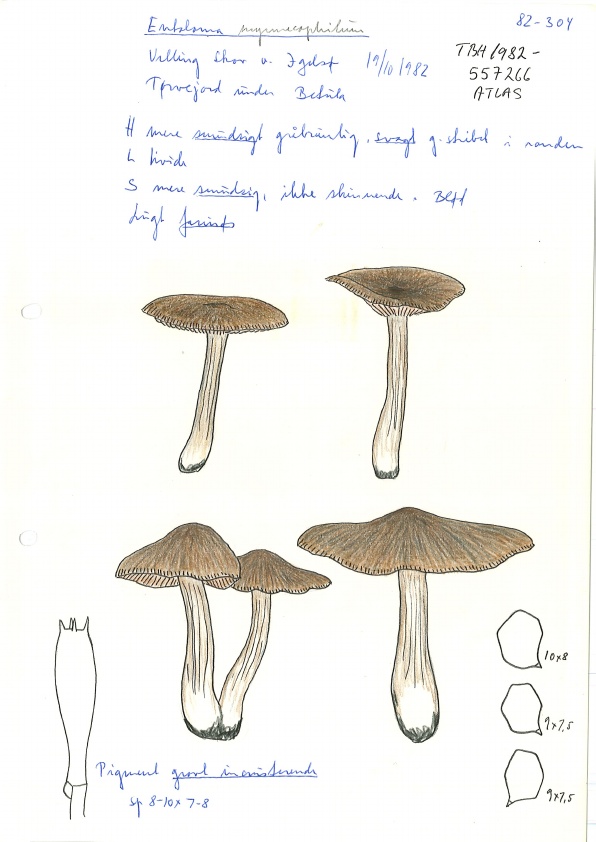 82-304
Entoloma myrmecophilum
Velling Skov v. 19/10 1982
TBH 1982-
557266
ATLAS
Tørvejord under Betula
H mere smudsigt gråbrunlig, svagt g.stribet i randen
L hvide
S mere smudsig, ikke skinnende.
Lugt
10x8
9x7,5
9x7,5
Pigment groft incrusterende
sp 8-10x7-8